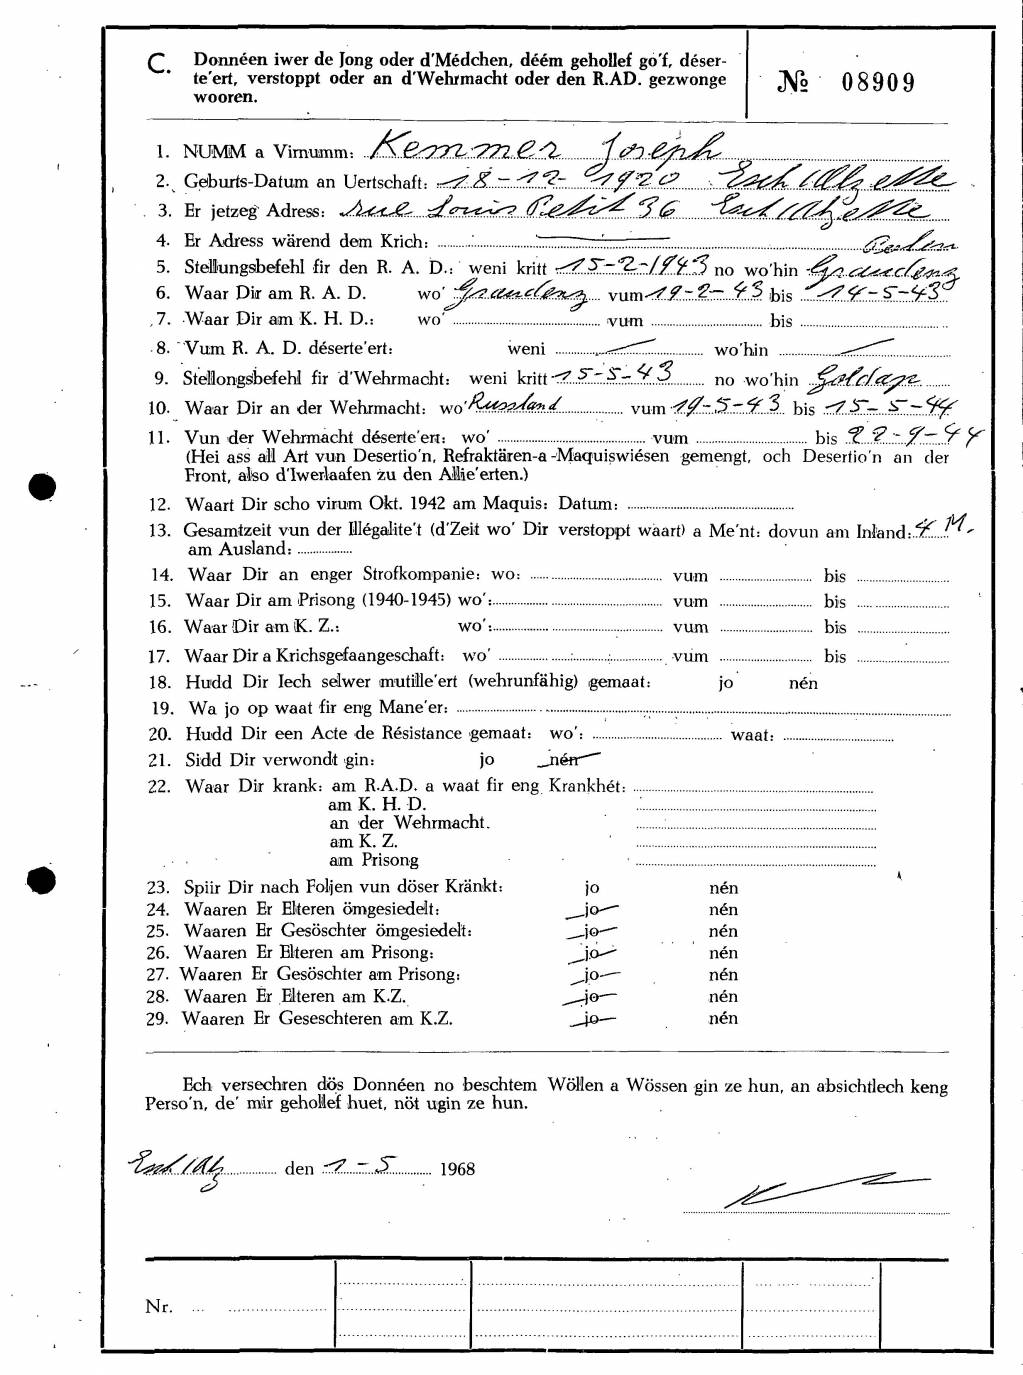 C. Donnéen iwer de Jong oder d'Médchen, déém gehollef go'f, déser-
te'ert, verstoppt oder an d'Wehrmacht oder den R.AD. gezwonge
wooren.
№ 08909
1. NUMM a Virnumm: Kemmer Joseph
2. Geburts-Datum an Uertschaft: 18-12-1920 Esch/Alzette
3. Er jetzeg Adress: rue Louis Petit 36 Esch/Alzette
4. Er Adress wärend dem Krich: —
5. Stellungsbefehl fir den R. A. D.: weni kritt 15-2-1943 no wo'hin Graudenz Polen
6. Waar Dir am R. A. D. wo' Graudenz vum 19-2-43 bis 14-5-43
7. Waar Dir am K. H. D.: wo' vum bis
8. Vum R. A. D. déserte'ert: weni — wo'hin —
9. Stellongsbefehl fir d'Wehrmacht: weni kritt 15-5-43 no wo'hin Goldap
10. Waar Dir an der Wehrmacht: wo' Russland vum 19-5-43 bis 15-5-44
11. Vun der Wehrmacht déserte'ert: wo' vum bis 22-9-44
(Hei ass all Art vun Desertio'n, Refraktären-a-Maquiswiésen gemengt, och Desertio'n an der
Front, also d'Iwerlaafen zu den Allie'erten.)
12. Waart Dir scho virum Okt. 1942 am Maquis: Datum:
13. Gesamtzeit vun der Illégalite't (d'Zeit wo' Dir verstoppt waart) a Me'nt: dovun am Inland: 4 M.
am Ausland:
14. Waar Dir an enger Strofkompanie: wo: vum bis
15. Waar Dir am Prisong (1940-1945) wo': vum bis
16. Waar Dir am K. Z.: wo': vum bis
17. Waar Dir a Krichsgefaangeschaft: wo' vum bis
18. Hudd Dir Iech selwer mutille'ert (wehrunfähig) gemaat: jo nén
19. Wa jo op waat fir eng Mane'er:
20. Hudd Dir een Acte de Résistance gemaat: wo': waat:
21. Sidd Dir verwondt gin: jo nén
22. Waar Dir krank: am R.A.D. a waat fir eng Krankhét:
am K. H. D.
an der Wehrmacht.
am K. Z.
am Prisong
23. Spiir Dir nach Foljen vun döser Kränkt: jo nén
24. Waaren Er Elteren ömgesiedelt: jo nén
25. Waaren Er Gesöschter ömgesiedelt: jo nén
26. Waaren Er Elteren am Prisong: jo nén
27. Waaren Er Gesöschter am Prisong: jo nén
28. Waaren Er Elteren am K.Z. jo nén
29. Waaren Er Geseschteren am K.Z. jo nén
Ech versechren dös Donnéen no beschtem Wöllen a Wössen gin ze hun, an absichtlech keng
Perso'n, de' mir gehollef huet, nöt ugin ze hun.
Esch/Alz den 1-5 1968
Nr.